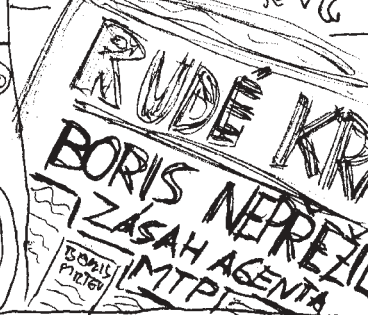 RUDÉ KR
BORIS NEPŘEŽIL
ZÁSAH AGENTA
MTP
BORIS